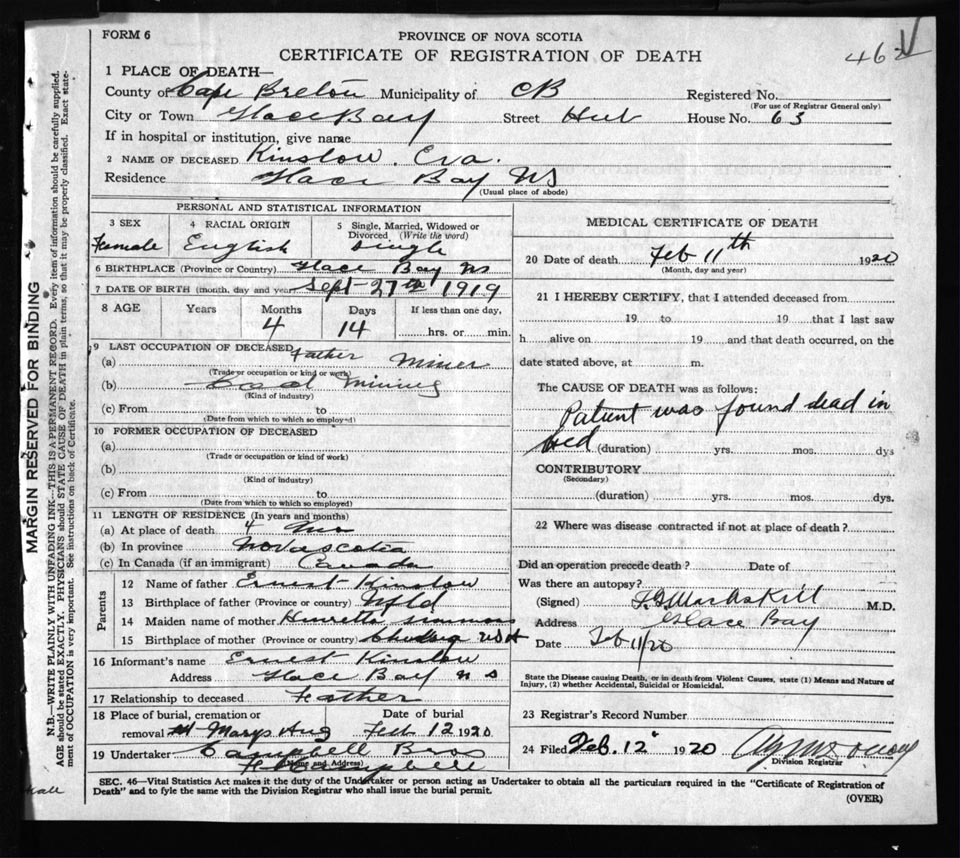 FORM 6
PROVINCE OF NOVA SCOTIA
CERTIFICATE OF REGISTRATION OF DEATH
462
1 PLACE OF DEATH—
County of Cape Breton Municipality of CB Registered No.
(For use of Registrar General only)
City or Town Glace Bay Street Hub House No. 63
If in hospital or institution, give name
2 NAME OF DECEASED Kinslow. Eva.
Residence Glace Bay NS
(Usual place of abode)
PERSONAL AND STATISTICAL INFORMATION
3 SEX 4 RACIAL ORIGIN 5 Single, Married, Widowed or Divorced (Write the word)
Female English Single
6 BIRTHPLACE (Province or Country) Glace Bay NS
7 DATE OF BIRTH (month, day and year) Sept 27th 1919
8 AGE Years Months Days If less than one day,
4 14 hrs. or min.
9 LAST OCCUPATION OF DECEASED
(a) Father Miner
(Trade or occupation or kind or work)
(b) Coal Mining
(Kind of industry)
(c) From to
(Date from which to which so employed)
10 FORMER OCCUPATION OF DECEASED
(a)
(Trade or occupation or kind of work)
(b)
(Kind of industry)
(c) From to
(Date from which to which so employed)
11 LENGTH OF RESIDENCE (In years and months)
(a) At place of death 4
(b) In province Nova Scotia
(c) In Canada (if an immigrant) Canada
Parents
12 Name of father Ernest Kinslow
13 Birthplace of father (Province or country) Nfld
14 Maiden name of mother Henretta Simmons
15 Birthplace of mother (Province or country)
16 Informant's name Ernest Kinslow
Address Glace Bay NS
17 Relationship to deceased Father
18 Place of burial, cremation or removal Date of burial
St Marys Feb 12 1920
19 Undertaker Campbell Bros
(Name and Address)
MEDICAL CERTIFICATE OF DEATH
20 Date of death Feb 11th 1920
(Month, day and year)
21 I HEREBY CERTIFY, that I attended deceased from
19 to 19 that I last saw
h alive on 19 and that death occurred, on the
date stated above, at m.
The CAUSE OF DEATH was as follows:
Patient was found dead in
bed (duration) yrs. mos. dys
CONTRIBUTORY
(Secondary)
(duration) yrs. mos. dys.
22 Where was disease contracted if not at place of death?
Did an operation precede death? Date of
Was there an autopsy?
(Signed) M.D.
Address Glace Bay
Date Feb 11/20
State the Disease causing Death, or in death from Violent Causes, state (1) Means and Nature of
Injury, (2) whether Accidental, Suicidal or Homicidal.
23 Registrar's Record Number
24 Filed Feb. 12 1920
Division Registrar
SEC. 46—Vital Statistics Act makes it the duty of the Undertaker or person acting as Undertaker to obtain all the particulars required in the "Certificate of Registration of
Death" and to fyle the same with the Division Registrar who shall issue the burial permit.
(OVER)
MARGIN RESERVED FOR BINDING
N.B.—WRITE PLAINLY WITH UNFADING INK—THIS IS A PERMANENT RECORD. Every item of information should be carefully supplied.
AGE should be stated EXACTLY. PHYSICIANS should STATE CAUSE OF DEATH in plain terms, so that it may be properly classified. Exact state-
ment of OCCUPATION is very important. See instructions on back of Certificate.